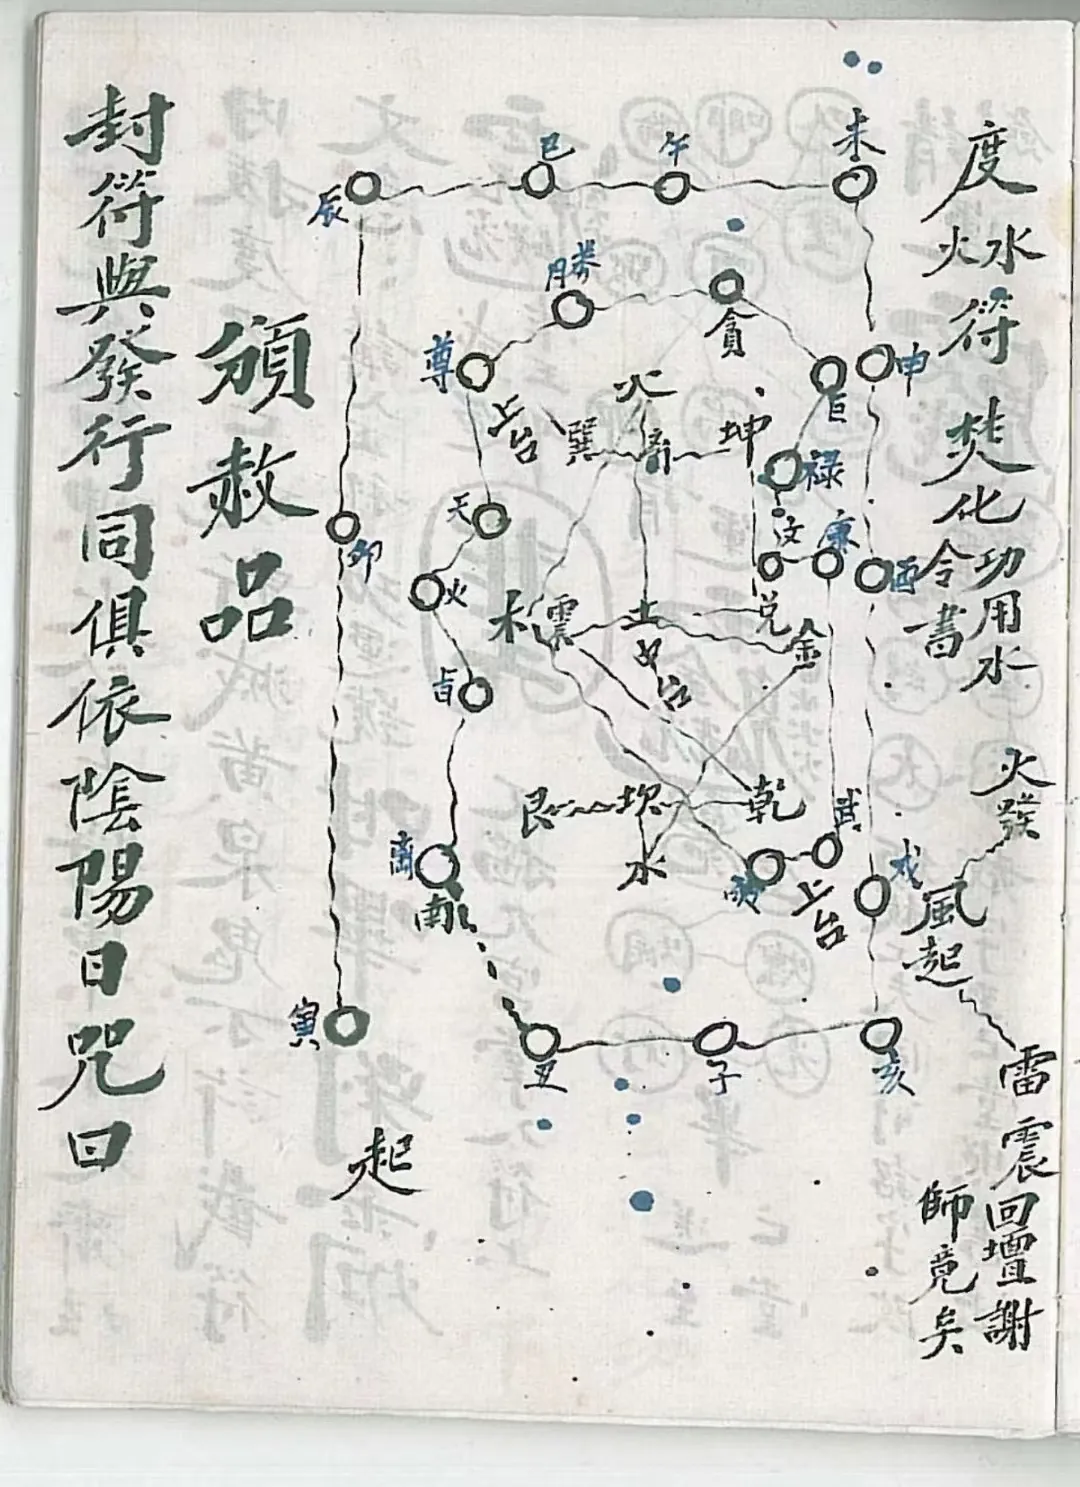 度水火符
焚化功用水
令書
火發
風起
雷震回壇謝
師竟矣
未
午
巳
辰
申
勝
貪
尊
巨
火
上台
巽
坤
禄
文
廉
天
卯
酉
火
木
震
土
兑
金
武
艮
坎
乾
水
上台
戌
南
寅
丑
子
亥
起
頒赦品
封符與發行同俱依陰陽日咒曰